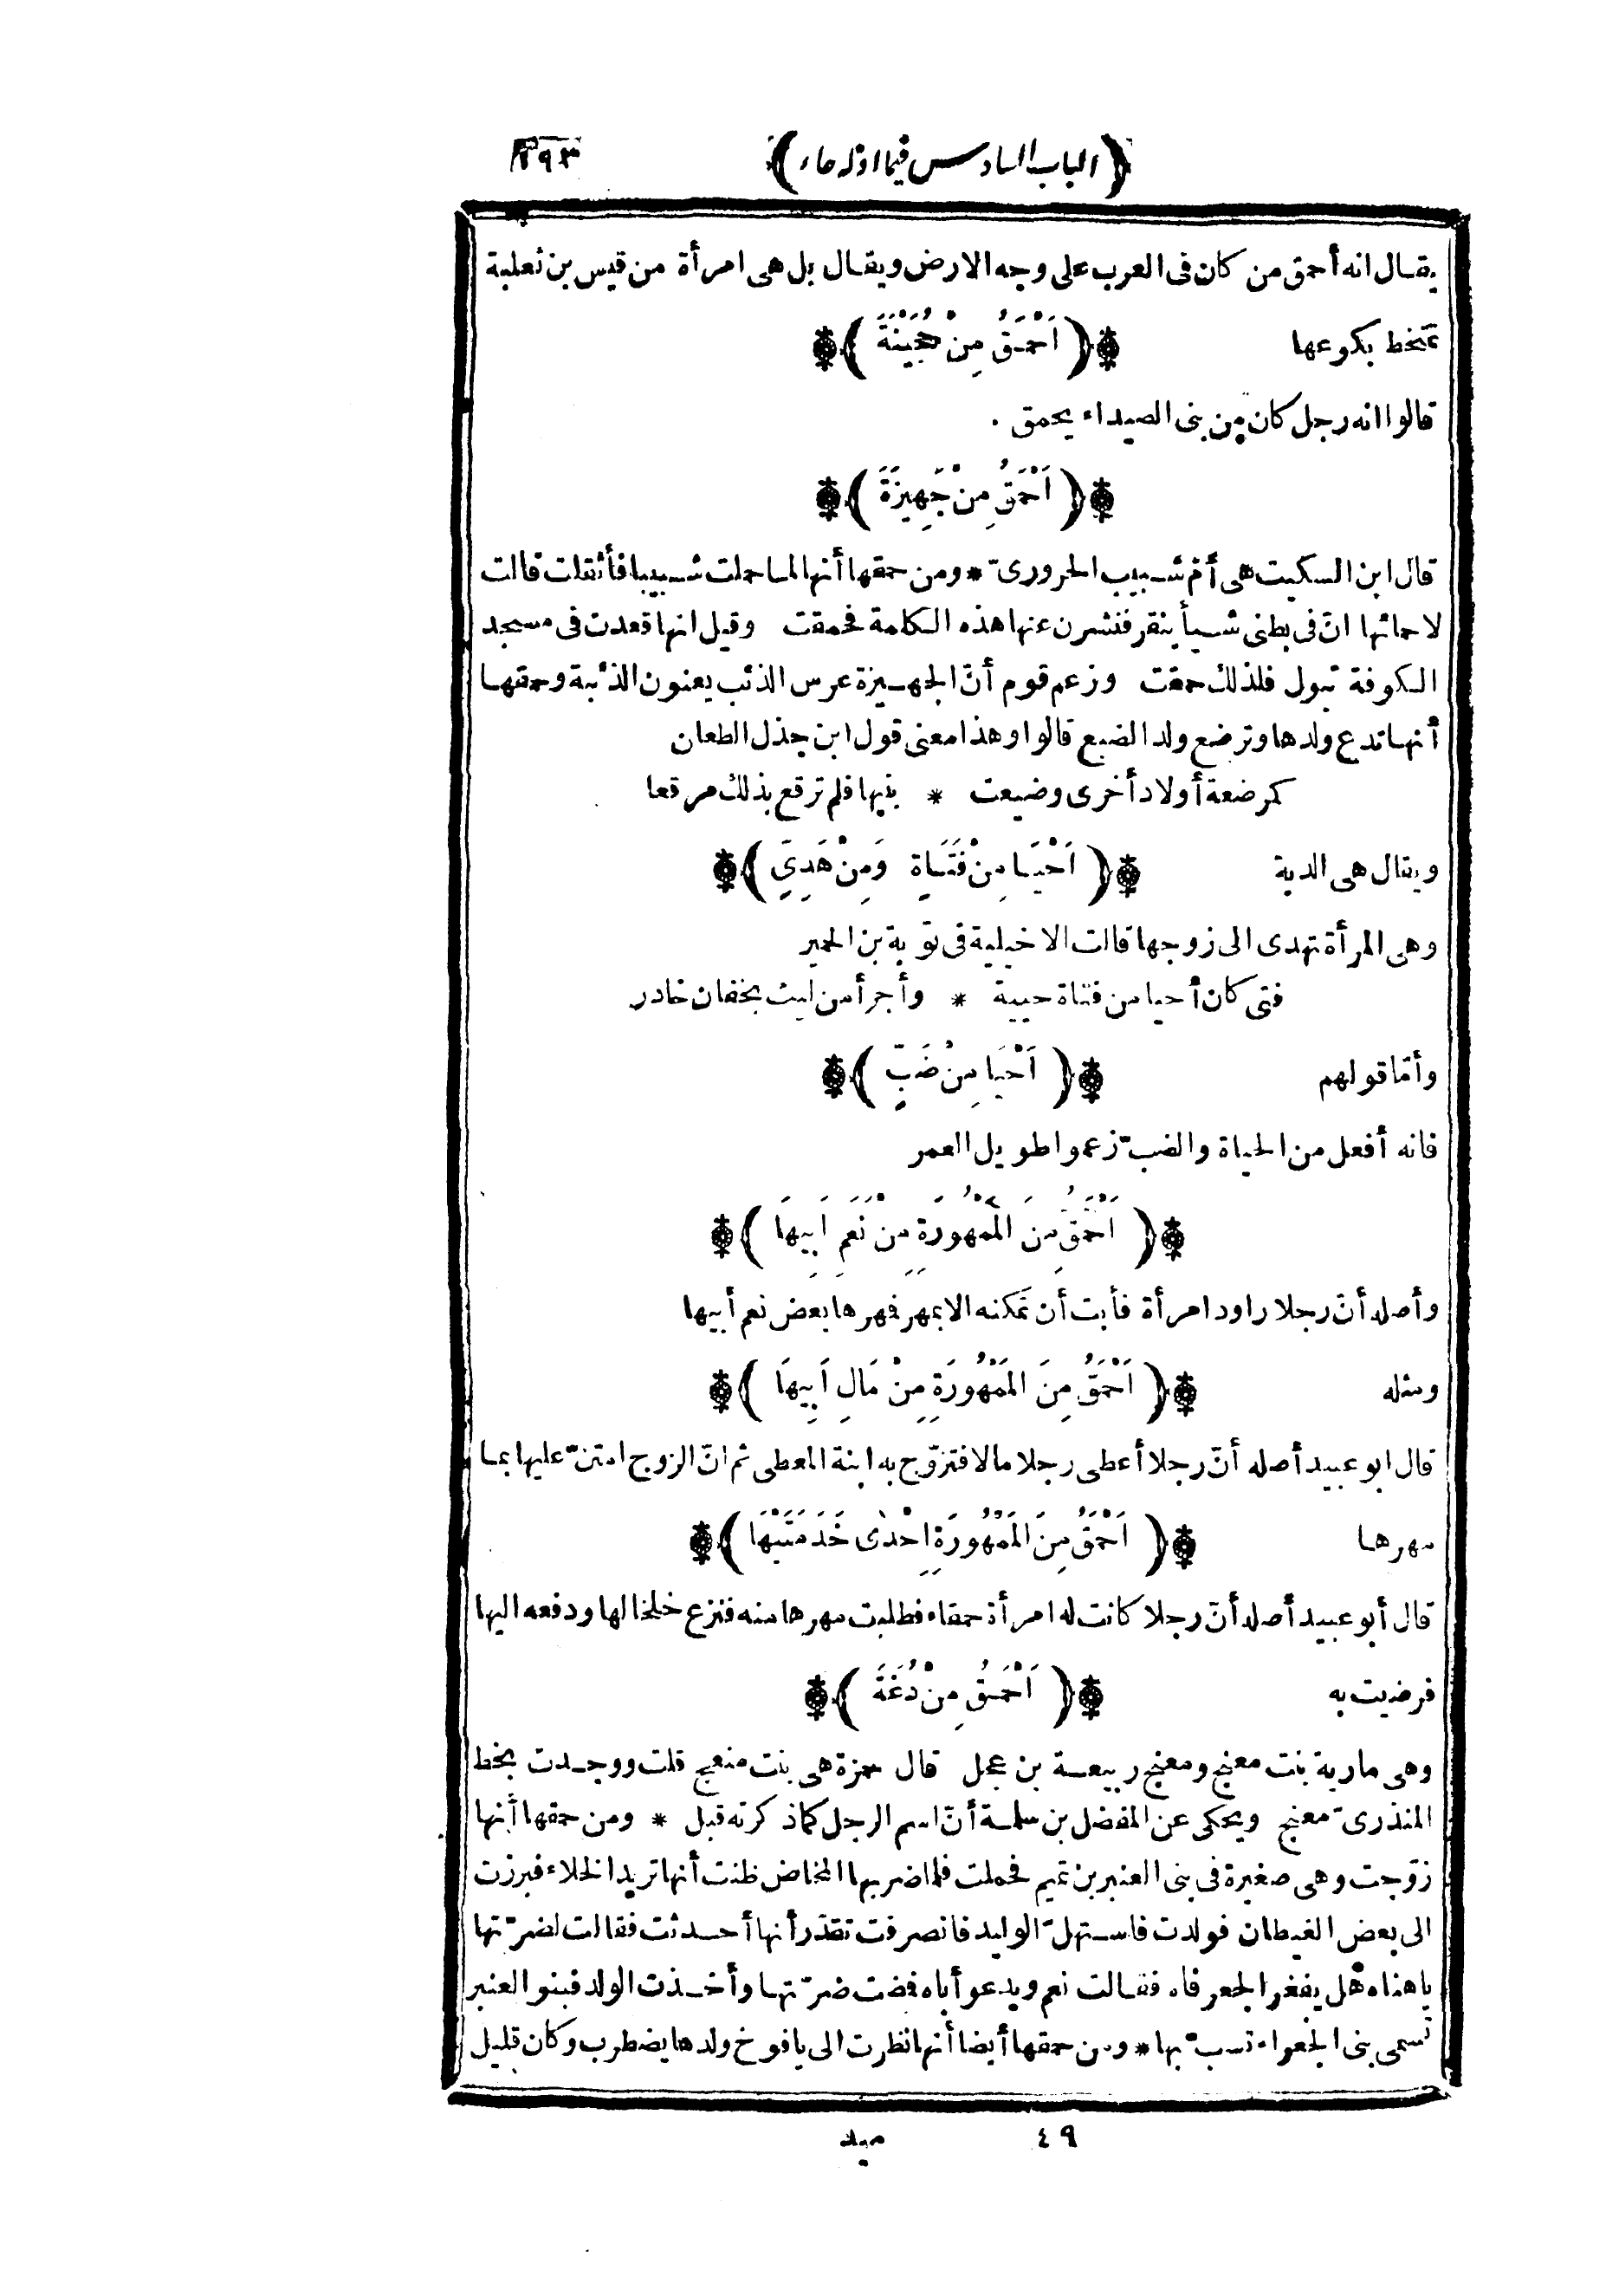 (الباب السادس فيما اوّله حاء) ١٩٣
يقال انه أحمق من كان فى العرب على وجه الارض ويقال بل هى امرأة من قيس بن ثعلبة
تمتخط بكوعها (اَحْمَقُ مِنْ حُجَيْنَةَ)
قالوا انه رجل كان من بنى الصيداء يحمق .
(اَحْمَقُ مِنْ جَهِيزَةَ)
قال ابن السكيت هى أمّ شبيب الحرورىّ * ومن حمقها أنها لما حملت شبيبا فأثقلت قالت
لاحمائها انّ فى بطنى شيأ ينقر فنشرن عنها هذه الكلمة فحمقت وقيل انها قعدت فى مسجد
الكوفة تبول فلذلك حمقت وزعم قوم أنّ الجهيزة عرس الذئب يعنون الذئبة وحمقها
أنها تدع ولدها وترضع ولد الضبع قالوا وهذا معنى قول ابن جذل الطعان
كمرضعة أولاد أخرى وضيعت * بنيها فلم ترقع بذلك مرقعا
ويقال هى الدبة (اَحْيَا مِنْ فَتَاةٍ وَمِنْ هَدِىٍّ)
وهى المرأة تهدى الى زوجها قالت الاخيلية فى توبة بن الحمير
فتى كان أحيا من فتاة حيية * وأجرأ من ليث بخفان خادر
وأمّا قولهم (اَحْيَا مِنْ ضَبٍّ)
فانه أفعل من الحياة والضبّ زعموا طويل العمر
(اَحْمَقُ مِنَ الْمَمْهُورَةِ مِنْ نَعَمِ اَبِيهَا)
وأصله أنّ رجلا راود امرأة فأبت أن تمكنه الا بمهر فهرها بعض نعم أبيها
ومثله (اَحْمَقُ مِنَ الْمَمْهُورَةِ مِنْ مَالِ اَبِيهَا)
قال ابو عبيد أصله أنّ رجلا أعطى رجلا مالا فتزوّج به ابنة المعطى ثم انّ الزوج امتنّ عليها بما
مهرها (اَحْمَقُ مِنَ الْمَمْهُورَةِ اِحْدَى خَدَمَتَيْهَا)
قال أبو عبيد أصله أنّ رجلا كانت له امرأة حمقاء فطلبت مهرها منه فنزع خلخالها ودفعه اليها
فرضيت به (اَحْمَقُ مِنْ دُغَةَ)
وهى مارية بنت معنج ومعنج ربيعة بن عجل قال حمزة هى بنت منعج قلت ووجدت بخط
المنذرىّ معنج ويحكى عن المفضل بن سلمة أنّ اسم الرجل كما ذكرته قبل * ومن حمقها أنها
زوّجت وهى صغيرة فى بنى العنبر بن تميم فحملت فلما ضربها المخاض ظنت أنها تريد الخلاء فبرزت
الى بعض الغيطان فولدت فاستهلّ الوليد فانصرفت تقدّر أنها أحدثت فقالت لضرّتها
يا هناه هل يفغر الجعر فاه فقالت نعم ويدعو أباه فمضت ضرّتها وأخذت الولد فبنو العنبر
تسمى بنى الجعراء تسبّ بها * ومن حمقها أيضا أنها نظرت الى يافوخ ولدها يضطرب وكان قليل
٤٩ ميد